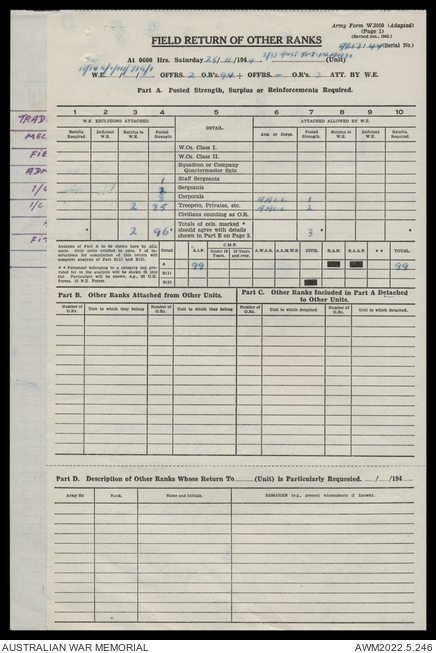 Army Form W.3009 (Adapted)
(Page 1)
(Revised Jan., 1943.)
FIELD RETURN OF OTHER RANKS
(Serial No.)
At 0600 Hrs. Saturday 25/11/1944 (Unit)
W.E. OFFRS. 2 O.R's 94 + OFFRS. — O.R's 3 ATT. BY W.E.
Part A. Posted Strength, Surplus or Reinforcements Required.
TRAD
MEC
FIE
ADM
1/C
FIT
1 2 3 4 5 6 7 8 9 10
W.E. EXCLUDING ATTACHED. DETAIL. ATTACHED ALLOWED BY W.E.
Reinfts. Required. Deficient W.E. Surplus to W.E. Posted Strength. Arm or Corps. Posted Strength. Surplus to W.E. Deficient W.E. Reinfts. Required.
W.Os. Class I.
W.Os. Class II.
Squadron or Company Quartermaster Sgts.
1 Staff Sergeants
2 Sergeants
8 Corporals AACC 1
2 85 Troopers, Privates, etc. AACC 2
Civilians counting as O.R.
* 2 96* Totals of cols. marked * should agree with details shown in Part E on Page 2. 3 * *
Analysis of Part A to be shown here by ALL units. Only units notified in para. 7 of instructions for completion of this return will complete analysis of Part B(1) and B(2).
** Personnel belonging to a category not provided for to be shown in this Col. Particulars will be shown, e.g., US Forces, NZ Forces.
Detail A.I.F. C.M.F. Under 19 Years. 19 Years and over. A.W.A.S. A.A.M.W.S. CIVIL. R.A.N. R.A.A.F. ** TOTAL.
A 99 99
B(1)
B(2)
Part B. Other Ranks Attached from Other Units.
Part C. Other Ranks Included in Part A Detached to Other Units.
Number of O.Rs. Unit to which they belong Number of O.Rs. Unit to which they belong Number of O.Rs. Unit to which detached. Number of O.Rs. Unit to which detached.
Part D. Description of Other Ranks Whose Return To (Unit) is Particularly Requested. / /194
Army No Rank. Name and Initials. REMARKS (e.g., present whereabouts if known).
AUSTRALIAN WAR MEMORIAL AWM2022.5.246